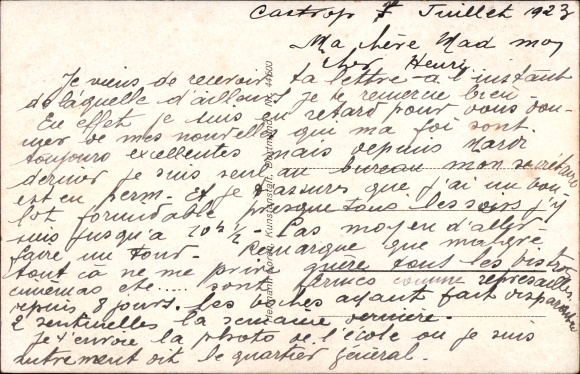 Castrop 7 Juillet 1923
Ma chère Mad mon
cher Henri
Je viens de recevoir ta lettre à l'instant
de laquelle d'ailleurs je te remercie bien.
En effet je suis en retard pour vous don-
ner de mes nouvelles qui ma foi sont
toujours excellentes mais depuis Mardi
dernier je suis seul au bureau mon secrétaire
est en perm. Et je t'assure que j'ai un bou
lot formidable presque tous les soirs j'y
suis jusqu'à 10h 1/2 - Pas moyen d'aller
faire un tour. Remarque que malgré
tout ça ne me prive guère tous les bistrots
cinemas etc..... sont fermés comme represailles
depuis 8 jours. Les boches ayant fait disparaître
2 sentinelles la semaine dernière.
Je t'envoie la photo de l'école ou je suis
autrement dit le quartier général.
Hermann Lorch, Kunstanstalt, Dortmund. Nr.